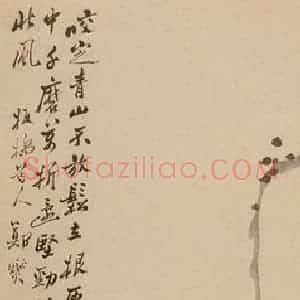 咬定青山不放鬆立根
中千磨萬折還堅勁
此風 板橋老人鄭燮
Shufaziliao.com